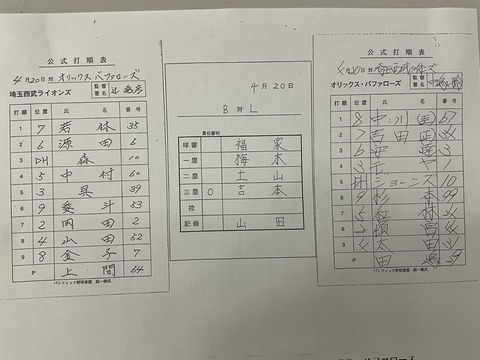 公式打順表
4月20日 対 オリックスバファローズ
埼玉西武ライオンズ 監督署名 辻 発彦
打順 位置 氏 名 番号
1 7 若林 35
2 6 源田 6
3 DH 森 10
4 5 中村 60
5 3 呉 39
6 9 愛斗 53
7 2 岡田 2
8 4 山田 52
9 8 金子 7
P 上間 64
パシフィック野球連盟 統一様式
4月20日
B 対 L
責任審判
球審 福家
一塁 梅木
二塁 土山
三塁 0 吉本
控
記録 山田
公式打順表
埼玉西武ライオンズ
オリックス・バファローズ 監督署名
打順 位置 氏 名 番号
1 8 中川(圭) 67
2 7 吉田正 34
3 6 安達 3
4 3 モヤ 1
5 DH ジョーンズ 10
6 9 杉本 99
7 5 紅林 24
8 2 頓宮 44
9 4 太田 31
P 田嶋 29
パシフィック野球連盟 統一様式